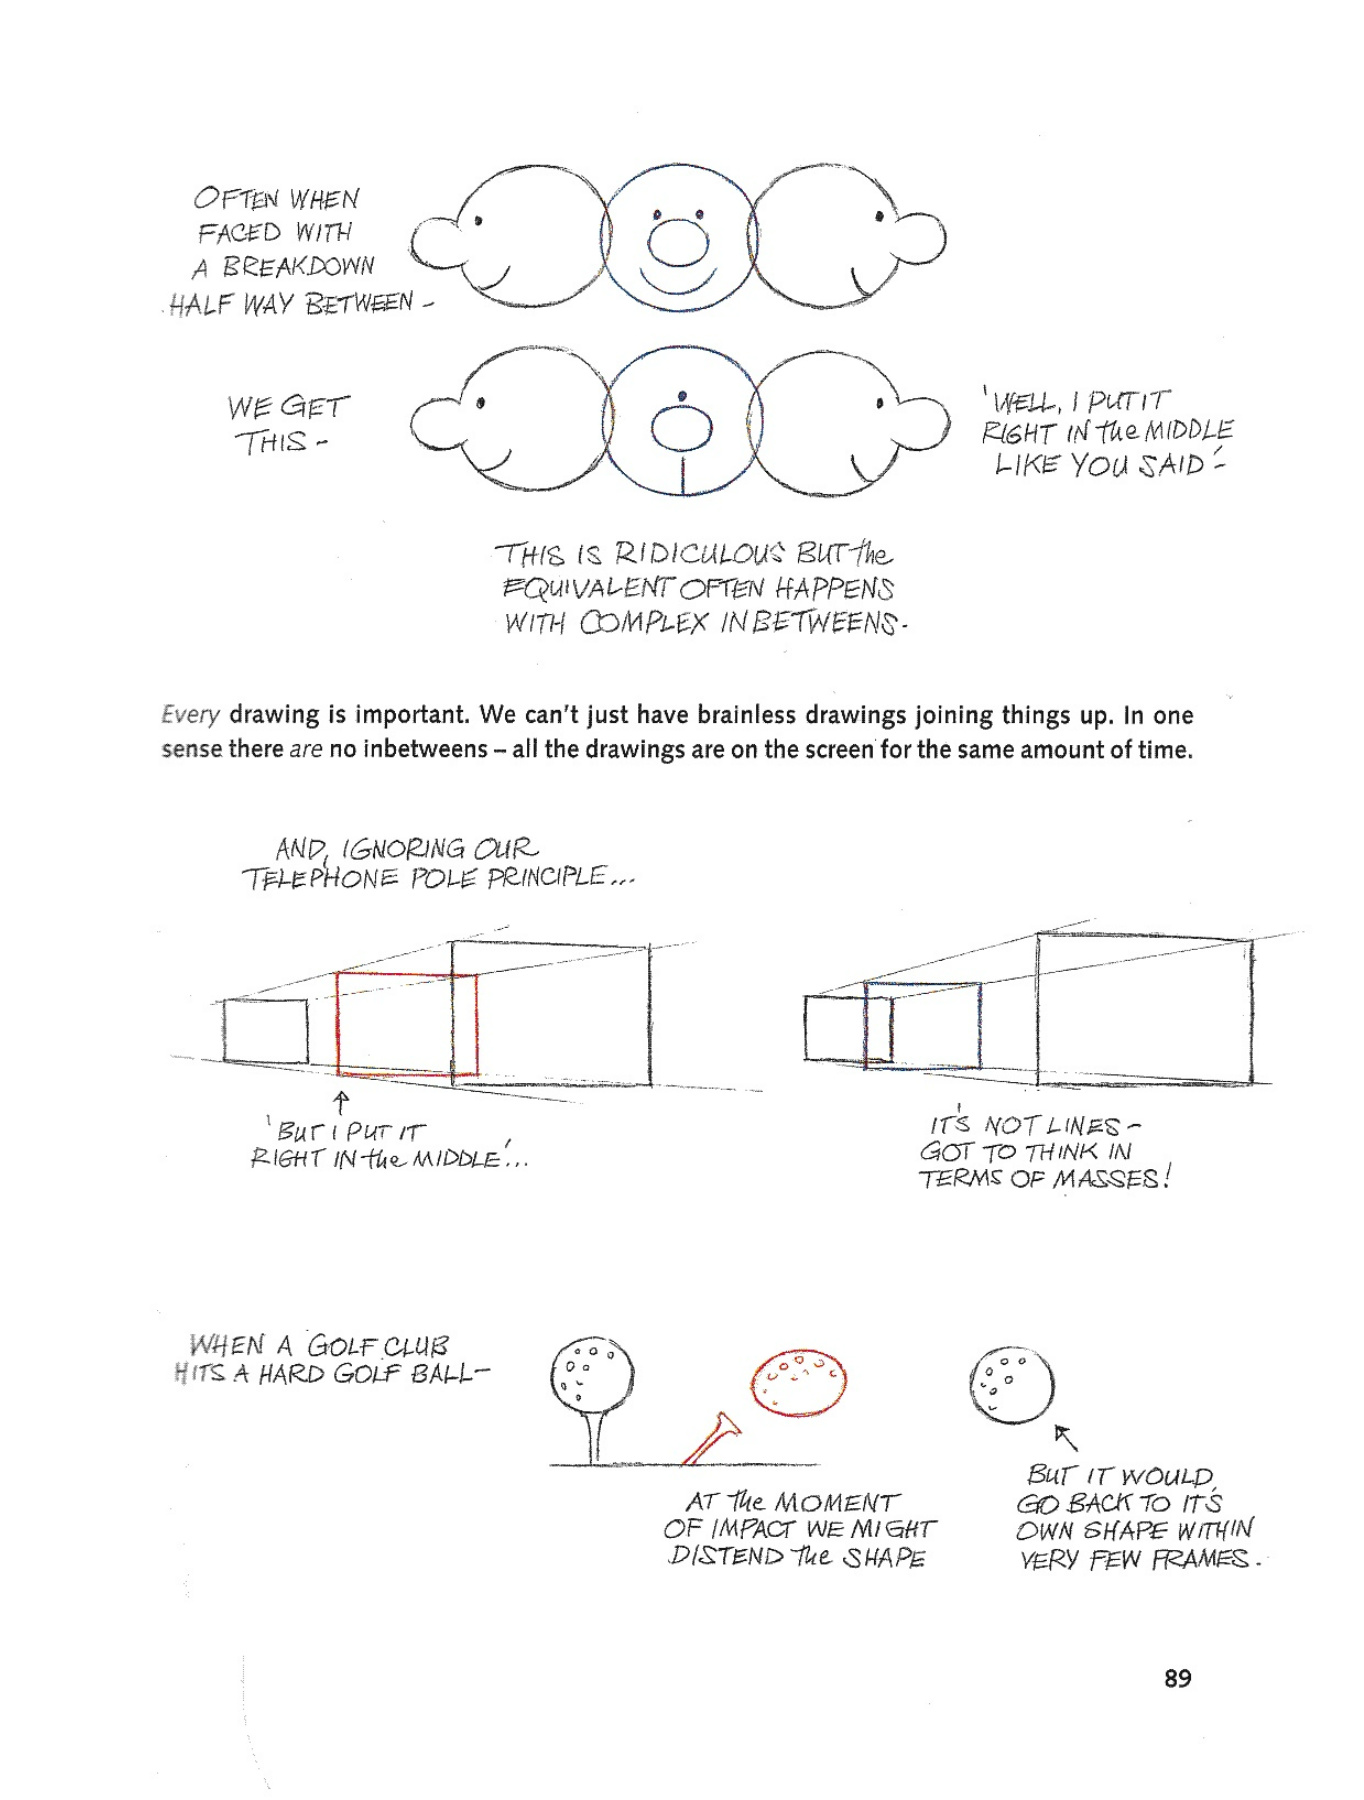 OFTEN WHEN
FACED WITH
A BREAKDOWN
HALF WAY BETWEEN -
WE GET
THIS -
'WELL, I PUT IT
RIGHT IN the MIDDLE
LIKE YOU SAID'-
THIS IS RIDICULOUS BUT the
EQUIVALENT OFTEN HAPPENS
WITH COMPLEX INBETWEENS.
Every drawing is important. We can't just have brainless drawings joining things up. In one
sense there are no inbetweens – all the drawings are on the screen for the same amount of time.
AND, IGNORING OUR
TELEPHONE POLE PRINCIPLE...
'BUT I PUT IT
RIGHT IN the MIDDLE'...
IT'S NOT LINES -
GOT TO THINK IN
TERMS OF MASSES!
WHEN A GOLF CLUB
HITS A HARD GOLF BALL-
AT the MOMENT
OF IMPACT WE MIGHT
DISTEND the SHAPE
BUT IT WOULD
GO BACK TO IT'S
OWN SHAPE WITHIN
VERY FEW FRAMES.
89